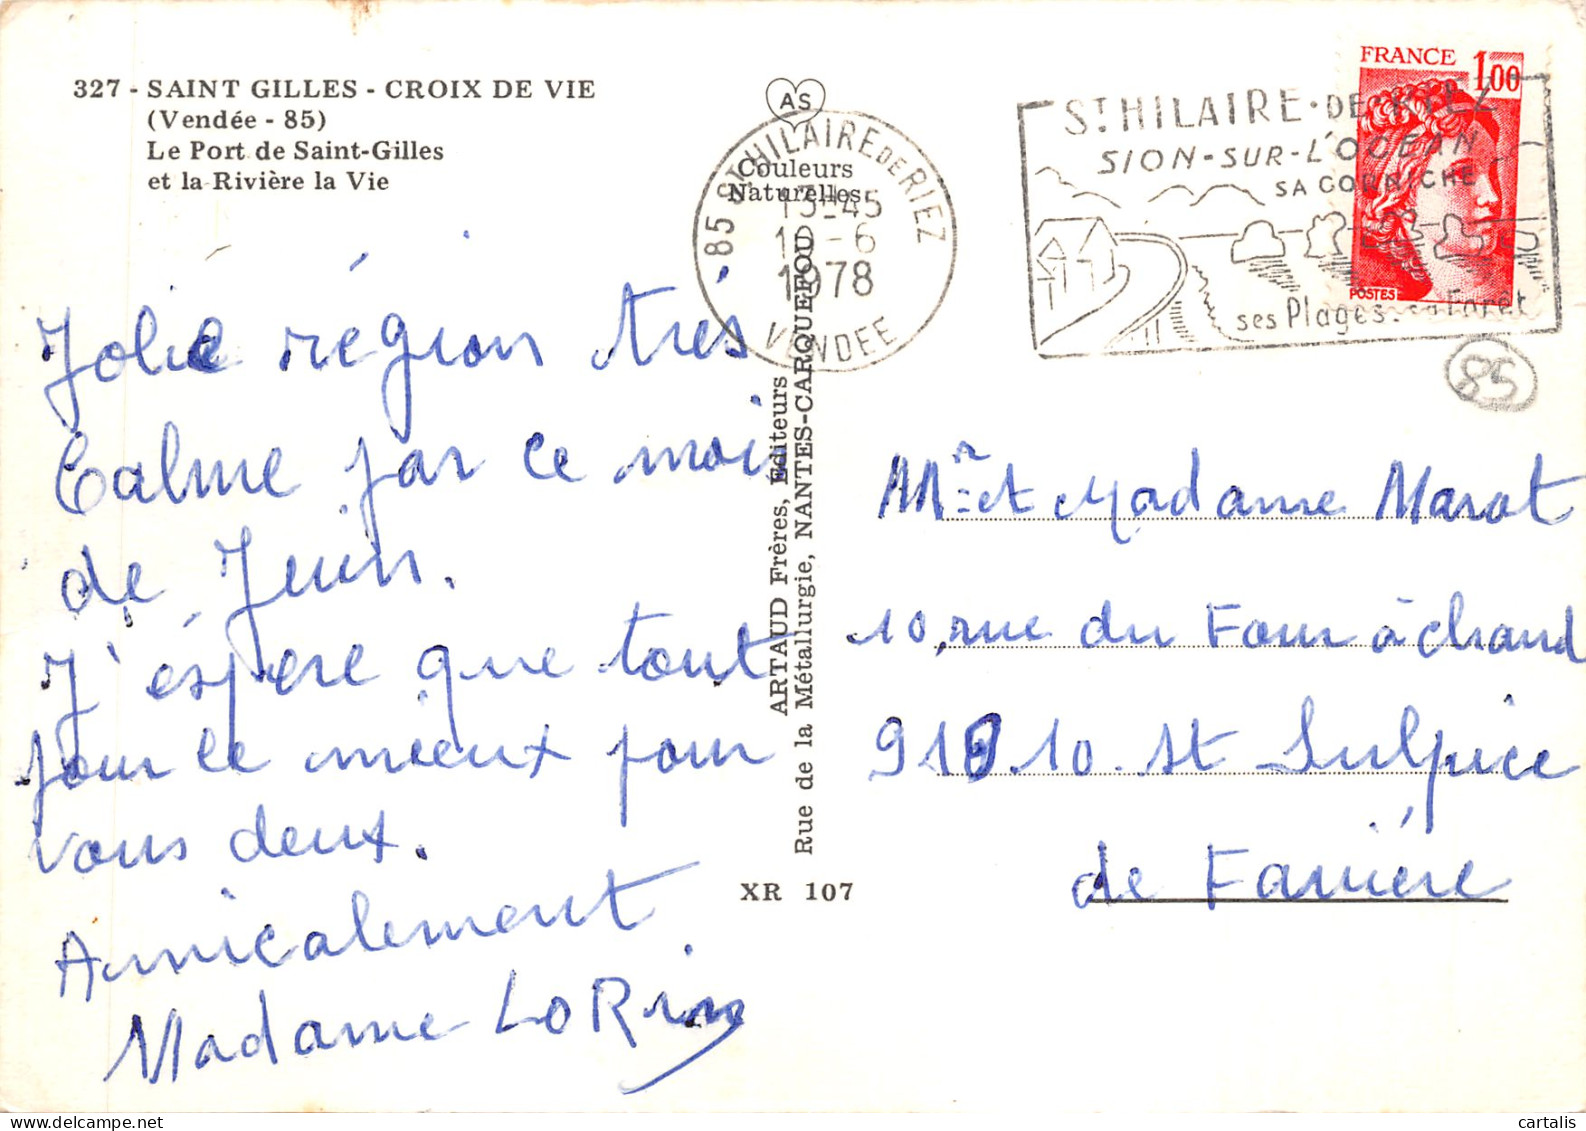 327 - SAINT GILLES - CROIX DE VIE
(Vendée - 85)
Le Port de Saint-Gilles
et la Rivière la Vie
AS
Couleurs
Naturelles
85 ST HILAIRE DE RIEZ
13-45
6
1978
VENDEE
ST HILAIRE · DE RIEZ
SION-SUR-L'OCEAN
SA CORNICHE
ses Plages. sa Forêt
FRANCE 1,00
POSTES
85
Jolie région très
Calme par ce mois
de Juin.
J'éspere que tout
pour le mieux pour
vous deux.
Amicalement
Madame LORin
ARTAUD Frères, Éditeurs
Rue de la Métallurgie, NANTES-CARQUEFOU
XR 107
Mr et Madame Marot
10, rue du Four à chaud
91910. St Sulpice
de Favière
cartalis